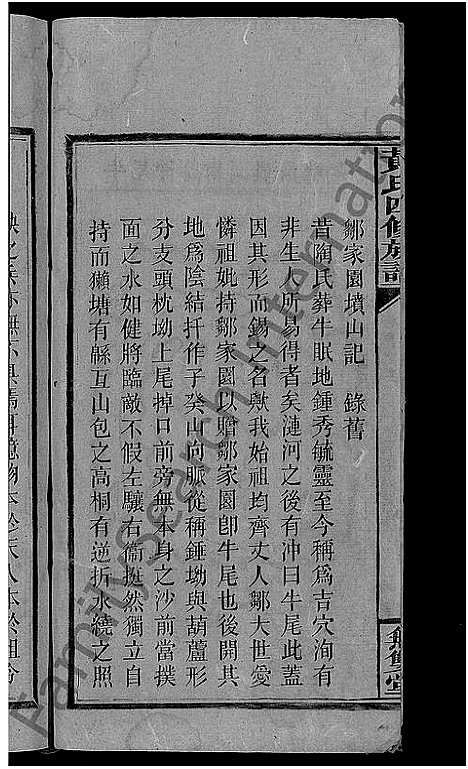 黃氏四修族譜
鄒家園墳山記　錄舊
昔陶氏葬牛眠地鍾秀毓靈至今稱為吉穴洵有
非生人所易得者矣漣河之後有沖曰牛尾此蓋
因其形而錫之名歟我始祖均齊丈人鄒大世愛
憐祖妣持鄒家園以贈鄒家園卽牛尾也後開其
地爲陰結扦作子癸山向脈從稱錘坳與葫蘆形
分支頭枕坳上尾掉口前旁無本身之沙前當撲
面之水如健將臨敵不假左驤右衞挺然獨立自
持而獺塘有緜亙山包之高桐有逆折水繞之照
無雙堂
FamilySearch International